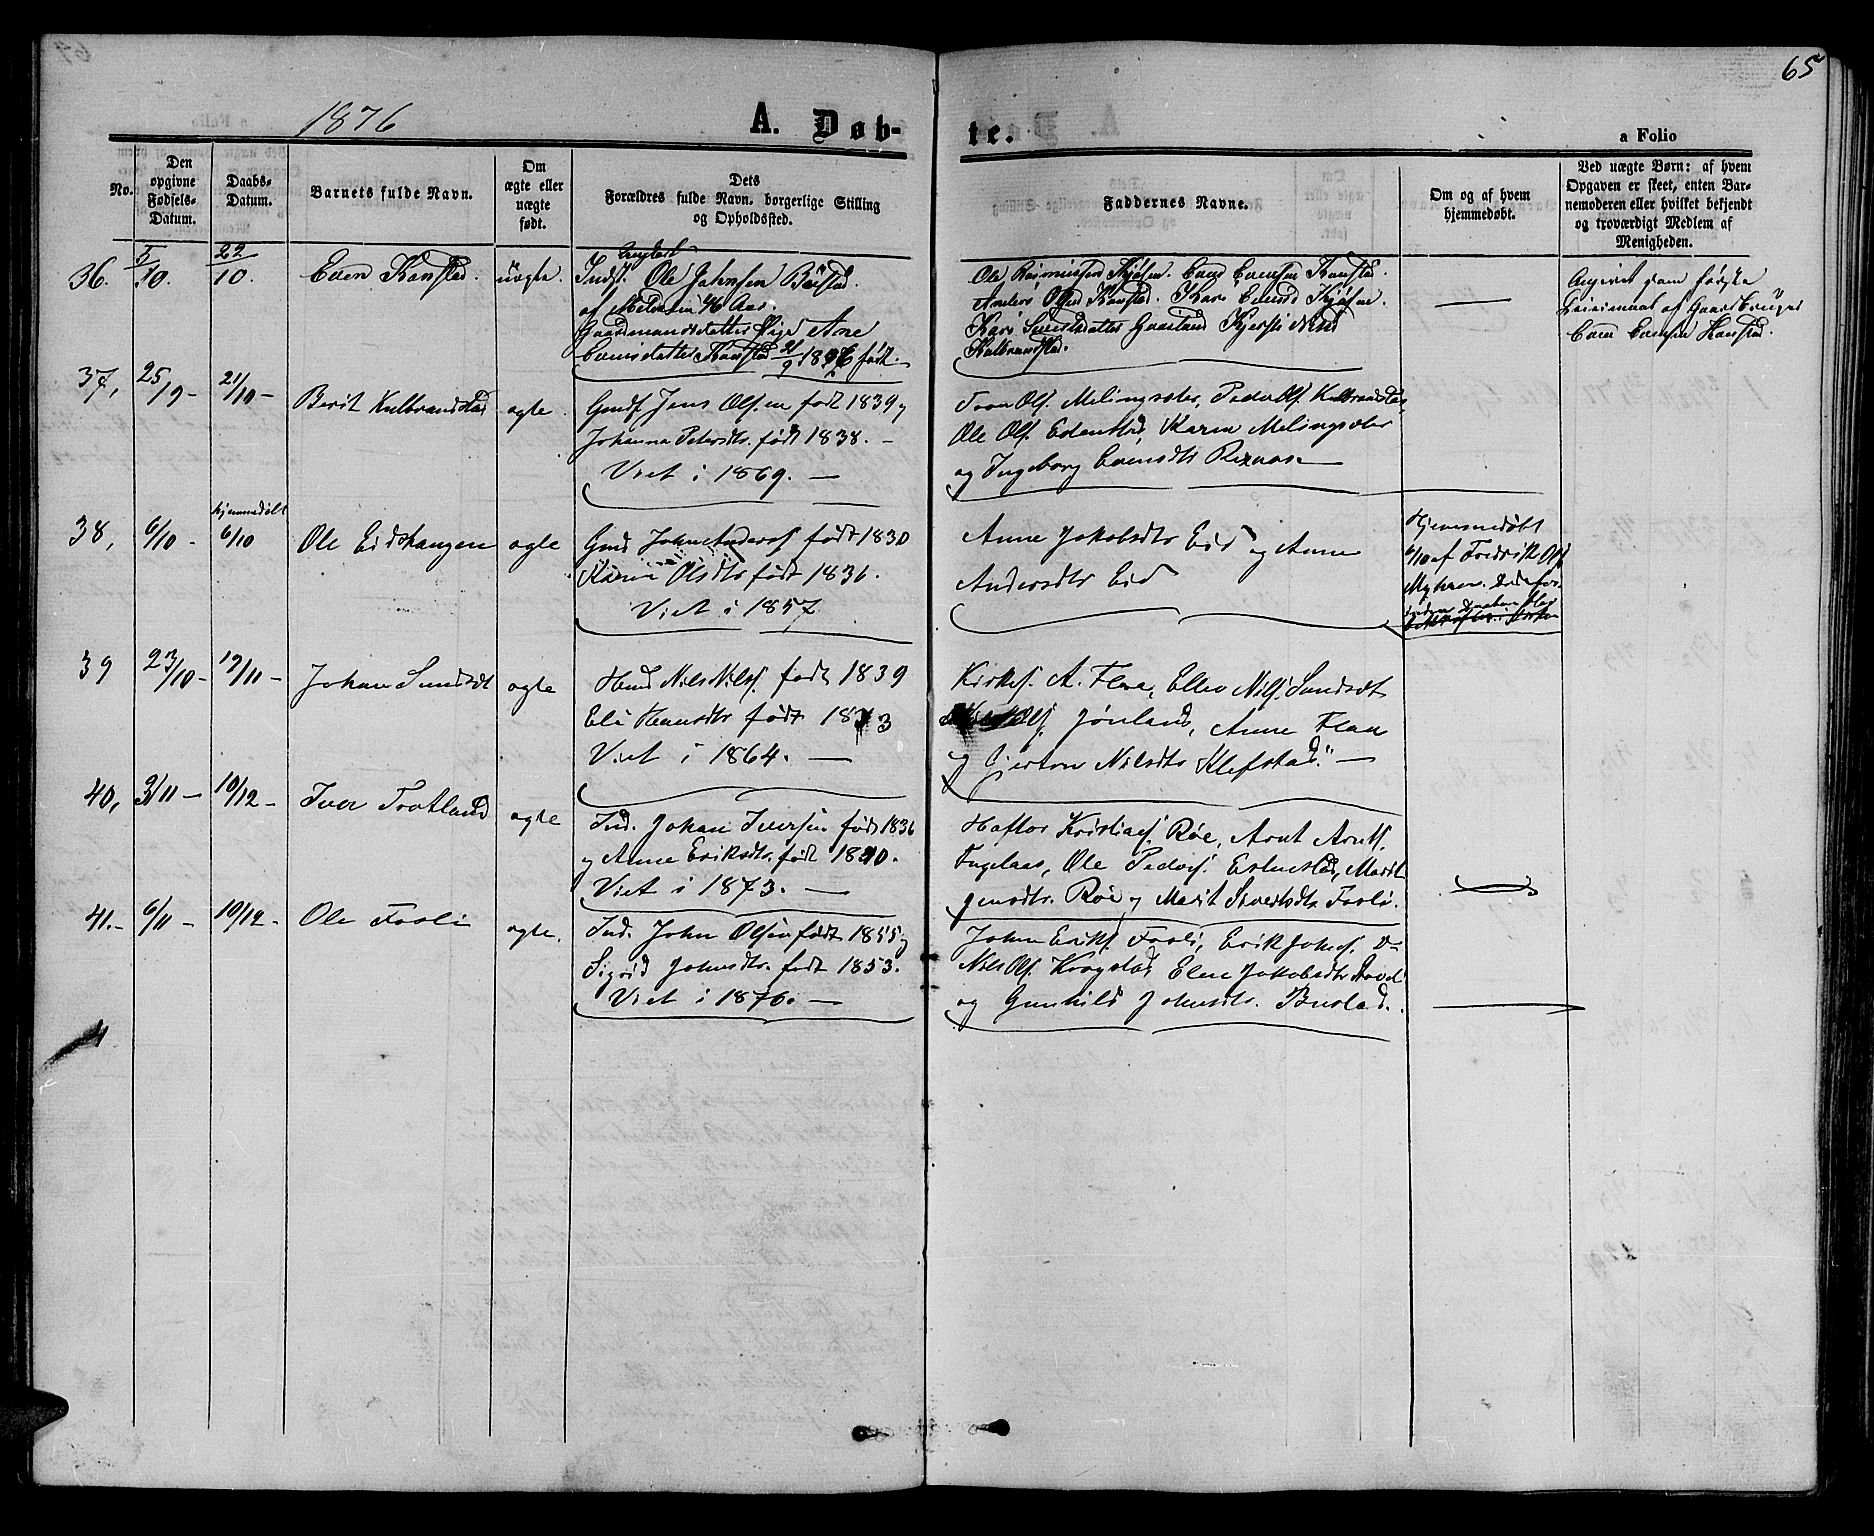 65
1876
A. Døb-
te.
a Folio
No.
Den
opgivne
Fødsels-
Datum.
Daabs-
Datum.
Barnets fulde Navn.
Om
ægte eller
uægte
født.
Dets
Forældres fulde Navn, borgerlige Stilling
og Opholdssted.
Faddernes Navne.
Om og af hvem
hjemmedøbt.
Ved uægte Børn: af hvem
Opgaven er skeet, enten Bar-
nemoderen eller hvilket bekjendt
og troværdigt Medlem af
Menigheden.
36.
5/10.
22/10.
Even Kanstad.
uægte.
Ungkarl
Indst. Ole Johnsen Bøstad
af Meldalen 46 Aar
Gaardmandsdatter Pige Ane
Evensdatter Kanstad 21/9 1836 født.
Ole Rasmussen Kjøsen. Even Evensen Kanstad.
Anders Olsen Kanstad. Kari Evensd Kjøsen.
Kari Gaasland
Kulbrandstad.
Angivet som første
Leiermaal af Gaardbruger
Even Evensen Kanstad.
37,
25/9 -
21/10 -
Berit Kulbrandstad
ægte.
Gmdf Jens Olsen født 1839 og
Johanna Petersdtr. født 1838. -
Viet i 1869. —
Olsf. Melingsæter, Peder Olsf. Kulbrandstad,
Ole Olsf. Edenstad, Karen Melingsæter
og Ingeborg Evensdtr
38,
6/10 -
hjemmedøbt
6/10
Ole Eidshaugen
ægte
Gmd John Andersf født 1830
Karen Olsdtr født 1836.
Viet i 1857.
Anne Jakobsdtr Eid og Anne
Andersdtr Eid
Hjemmedøbt
6/10 af Fredrik Olsf
Myhren. Døde for-
39
23/10 -
19/11 -
Johan Sundset
ægte
Hmd Nils Nilsf. født 1839
Eli Hansdtr født 1843
Viet i 1864. —
Kirkes. A. Flaa, Ellev Nilsf. Sundset
Olsf. Jønland, Anne Flaa
og Gjertru Nilsdtr Klefstad. —
40,
3/11 -
10/12 -
Iver Trotland
ægte
Ind. Johan Iversen født 1836
og Anne Eriksdtr. født 1840.
Viet i 1873. —
Haftor Kristiansf. Røe, Arnt Arntsf.
Engelaas, Ole Pedersf. Estenstad, Marit
Jensdtr. Røe og Marit Sivertsdtr. Fooli.
41. -
6/11 -
10/12 -
Ole Fooli
ægte.
Ind. John Olsen født 1855 og
Sigrid Johnsdtr. født 1853.
Viet i 1876. —
John Eriksf. Fooli, Erik Johnsf. Do
Nils Olsf. Krogstad, Elen Jakobsdtr
og Gunhild Johnsdtr. Bustad.